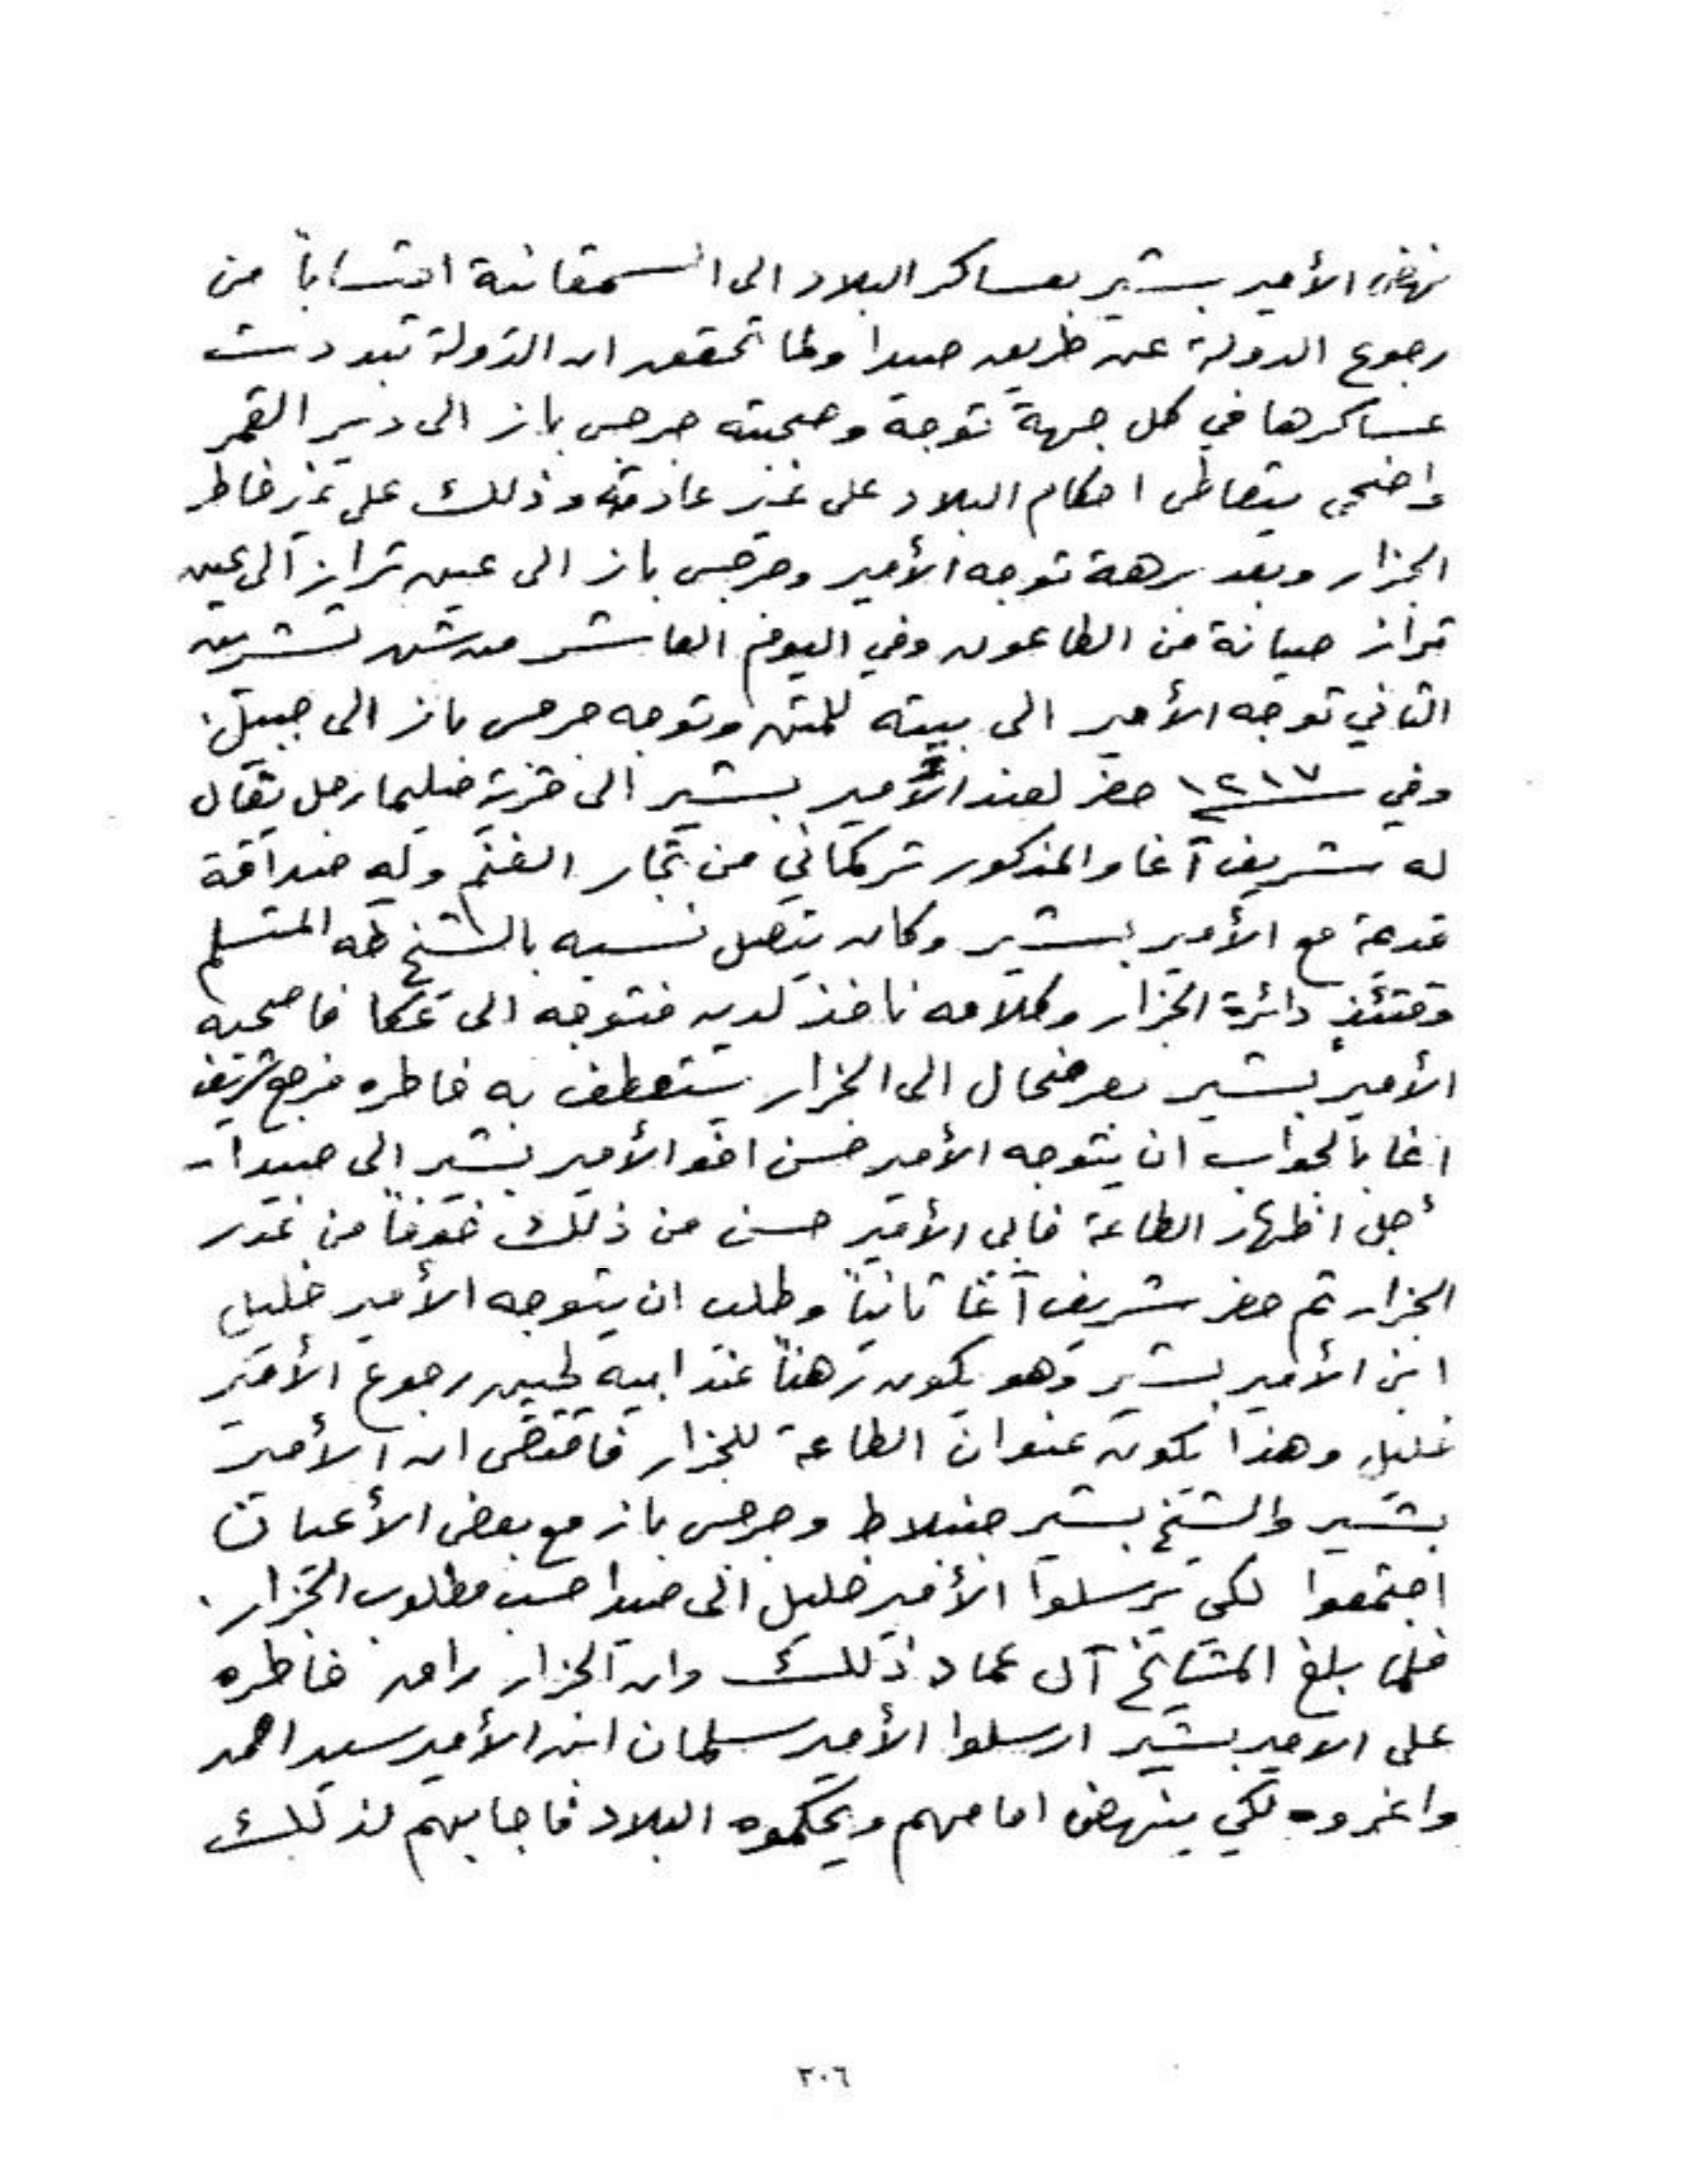 نهض الأمير بشير بعساكر البلاد الى السمقانية احتساباً من
رجوع الدولة عن طريق صيدا ولما تحقق ان الدولة تبددت
عساكرها في كل جهة توجه وصحبته جرجس باز الى دير القمر
واضحى يتعاطى احكام البلاد على غير عادته وذلك على غير خاطر
الجزار وبعد برهة توجه الأمير وجرجس باز الى عين تراز الى عين
تراز صيانة من الطاعون وفي اليوم العاشر من شهر تشرين
الثاني توجه الأمير الى بيته للمتن وتوجه جرجس باز الى جبيل.
وفي سنة ١٢١٧ حضر لعند الأمير بشير الى قرية صليما رجل يقال
له شريف آغا والمذكور تركماني من تجار الغنم وله صداقة
قدمة مع الأمير بشير وكان يتصل نسبه بالشيخ طه المتسلم
وقتئذٍ دائرة الجزار وكلامه نافذ لديه فتوجه الى عكا فاصحبه
الأمير بشير بعرضحال الى الجزار يستعطف به خاطره فرجع شريف
اغا بالجواب ان يتوجه الأمير حسن اخو الأمير بشير الى صيدا
أجل اظهار الطاعة فابى الأمير حسن من ذلك خوفاً من غدر
الجزار ثم حضر شريف آغا ثانياً وطلب ان يتوجه الأمير خليل
ابن الأمير بشير وهو يكون رهناً عند ابيه لحين رجوع الأمير
خليل وهذا يكون عنوان الطاعة للجزار فاقتضى ان الأمير
بشير والشيخ بشير جنبلاط وجرجس باز مع بعض الأعيان
اجتمعوا لكي يرسلوا الأمير خليل الى صيدا حسب مطلوب الجزار.
فلما بلغ المشايخ آل عماد ذلك وان الجزار راق خاطره
على الامير بشير ارسلوا الأمير سلمان ابن الأمير سيد احمد
واغروه لكي ينهض امامهم ويحكموه البلاد فاجابهم لذلك
٣٠٦